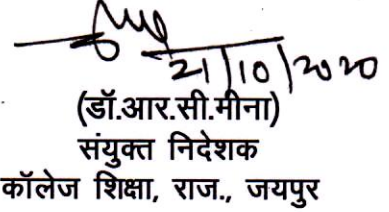 21/10/2020
(डॉ.आर.सी.मीना)
संयुक्त निदेशक
कॉलेज शिक्षा, राज., जयपुर